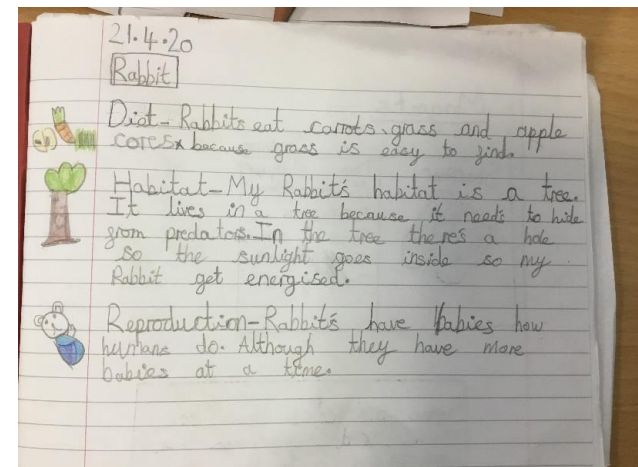 21.4.20
Rabbit
Diet - Rabbits eat carrots, grass and apple
cores x because grass is easy to find.
Habitat - My Rabbit's habitat is a tree.
It lives in a tree because it needs to hide
from predators. In the tree there's a hole
so the sunlight goes inside so my
Rabbit get energised.
Reproduction - Rabbit's have babies how
humans do. Although they have more
babies at a time.